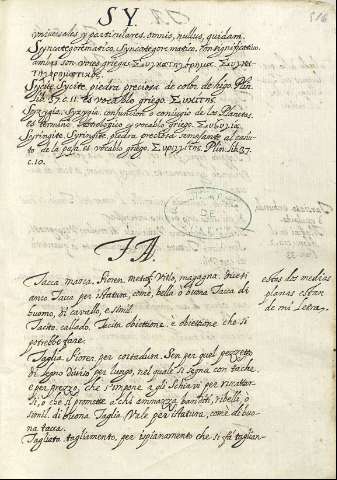 SY.
316
universales y particulares, omnis, nullus, quidam.
Syncategorematico, Syncategorematico, consignificativo
ambos son voces griegas.
Sycite, Sycite, piedra preciosa de color de higo. Plin.
lib. 37. c. 11. es vocablo griego. Συκιτης.
Syzygia, Syzygia, conjuncion o conjugio de los Planetas.
es termino Astrologico y vocablo griego.
Syringite, Syringite, piedra preciosa semejante al cañu-
to de la paja. es vocablo griego. Plin. lib. 37.
c. 10.
DE
TA.
Tacca, marca. Fioren. metaf. Vitio, magagna. Quesi
anco Tacca per istatura, come, bella o buona Tacca di
huomo, di cavallo, e simil.
Tacito, callado. Tacita obiettione, è obiettione che si
potrebbe fare.
Taglia. Fioren. por cortadura. Sen. per quel pezzetto
di legno diviso per lungo, nel quale si segna con tacche.
e per prezzo, che s'impone a gli schiavi per riscattar-
si, o che si promette a chi ammazza banditi, ribelli, o
simil. di buona Taglia. Vale per istatura, come di buo-
na tacca.
Tagliata tagliamento, per ispianamento che si fa taglian-
estas dos medias
planas estan
de mi letra.